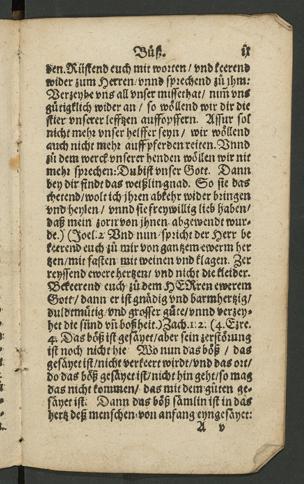 Büß. ij
den. Rüstend euch mit worten / vnd keerend
wider zum Herren / vnnd sprechend zů jhm:
Verzeyhe vns all vnser missethat / nim̃ vns
gütigklich wider an / so wöllend wir dir die
stier vnserer lefftzen auffopffern. Assur sol
nicht mehr vnser helffer seyn / wir wöllend
auch nicht mehr auff pferden reiten. Vnnd
zů dem werck vnserer henden wöllen wir nit
mehr sprechen: Du bist vnser Gott. Dann
bey dir findt das weyßlin gnad. So sie das
thetend / wolt ich jhren abkehr wider bringen
vnd heylen / vnnd sie freywillig lieb haben /
daß mein zorn von jhnen abgewendt wur-
de.) (Joel.2. Vnd nun spricht der Herr be
keerend euch zů mir von gantzem ewerm her
tzen / mit fasten mit weinen vnd klagen. Zer
reyssend ewere hertzen / vnd nicht die kleider.
Bekeerend euch zů dem HERren ewerem
Gott / dann er ist gnädig vnd barmhertzig /
duldtmütig vnd grosser güte / vnnd verzey-
het die sünd vñ boßheit.) Zach.1:2. (4. Ezre.
4. Das böß ist gesäyet / aber sein zerstörung
ist noch nicht hie. Wo nun das böß / das
gesäyet ist / nicht verkeert wirdt / vnd das ort /
do das böß gesäyet ist / nicht hin geht / so mag
das nicht kommen / das mit dem gůten ge-
säyet ist. Dann das böß sämlin ist in das
hertz deß menschen von anfang eyngesäyet:
A v